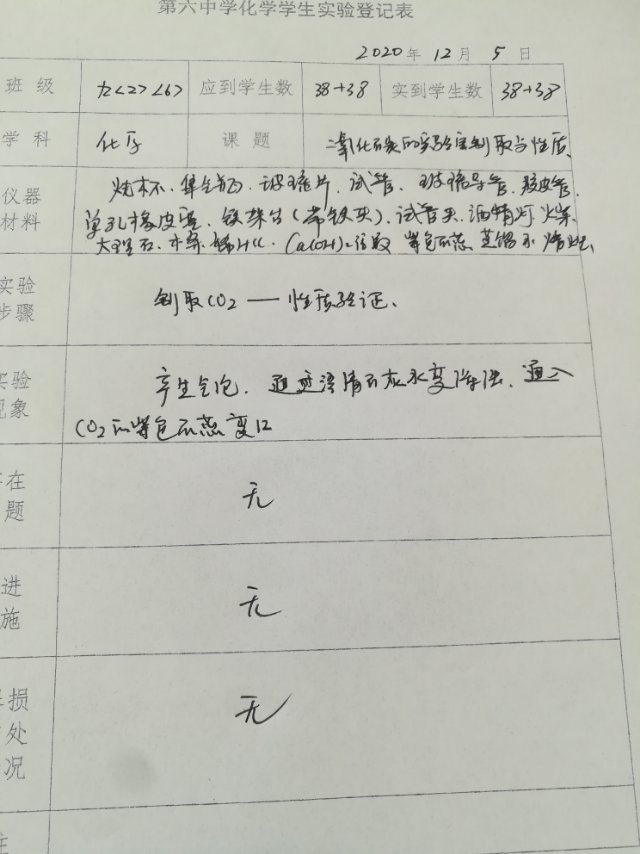 第六中学化学学生实验登记表
2020年 12月 5日
班级 九<2><6> 应到学生数 38+38 实到学生数 38+38
学科 化学 课题 二氧化碳的实验室制取与性质
仪器 烧杯、集气瓶、玻璃片、试管、玻璃导管、胶皮管、
材料 单孔橡皮塞、铁架台(带铁夹)、试管夹、酒精灯、火柴、
大理石、木条、稀HCl、Ca(OH)2 紫色石蕊 蒸馏水
实验
步骤 制取CO2——性质验证、
实验 产生气泡、通过澄清石灰水变浑浊、通入
现象 CO2的紫色石蕊变红
存在
题 无
进
施 无
损
处 无
况
注